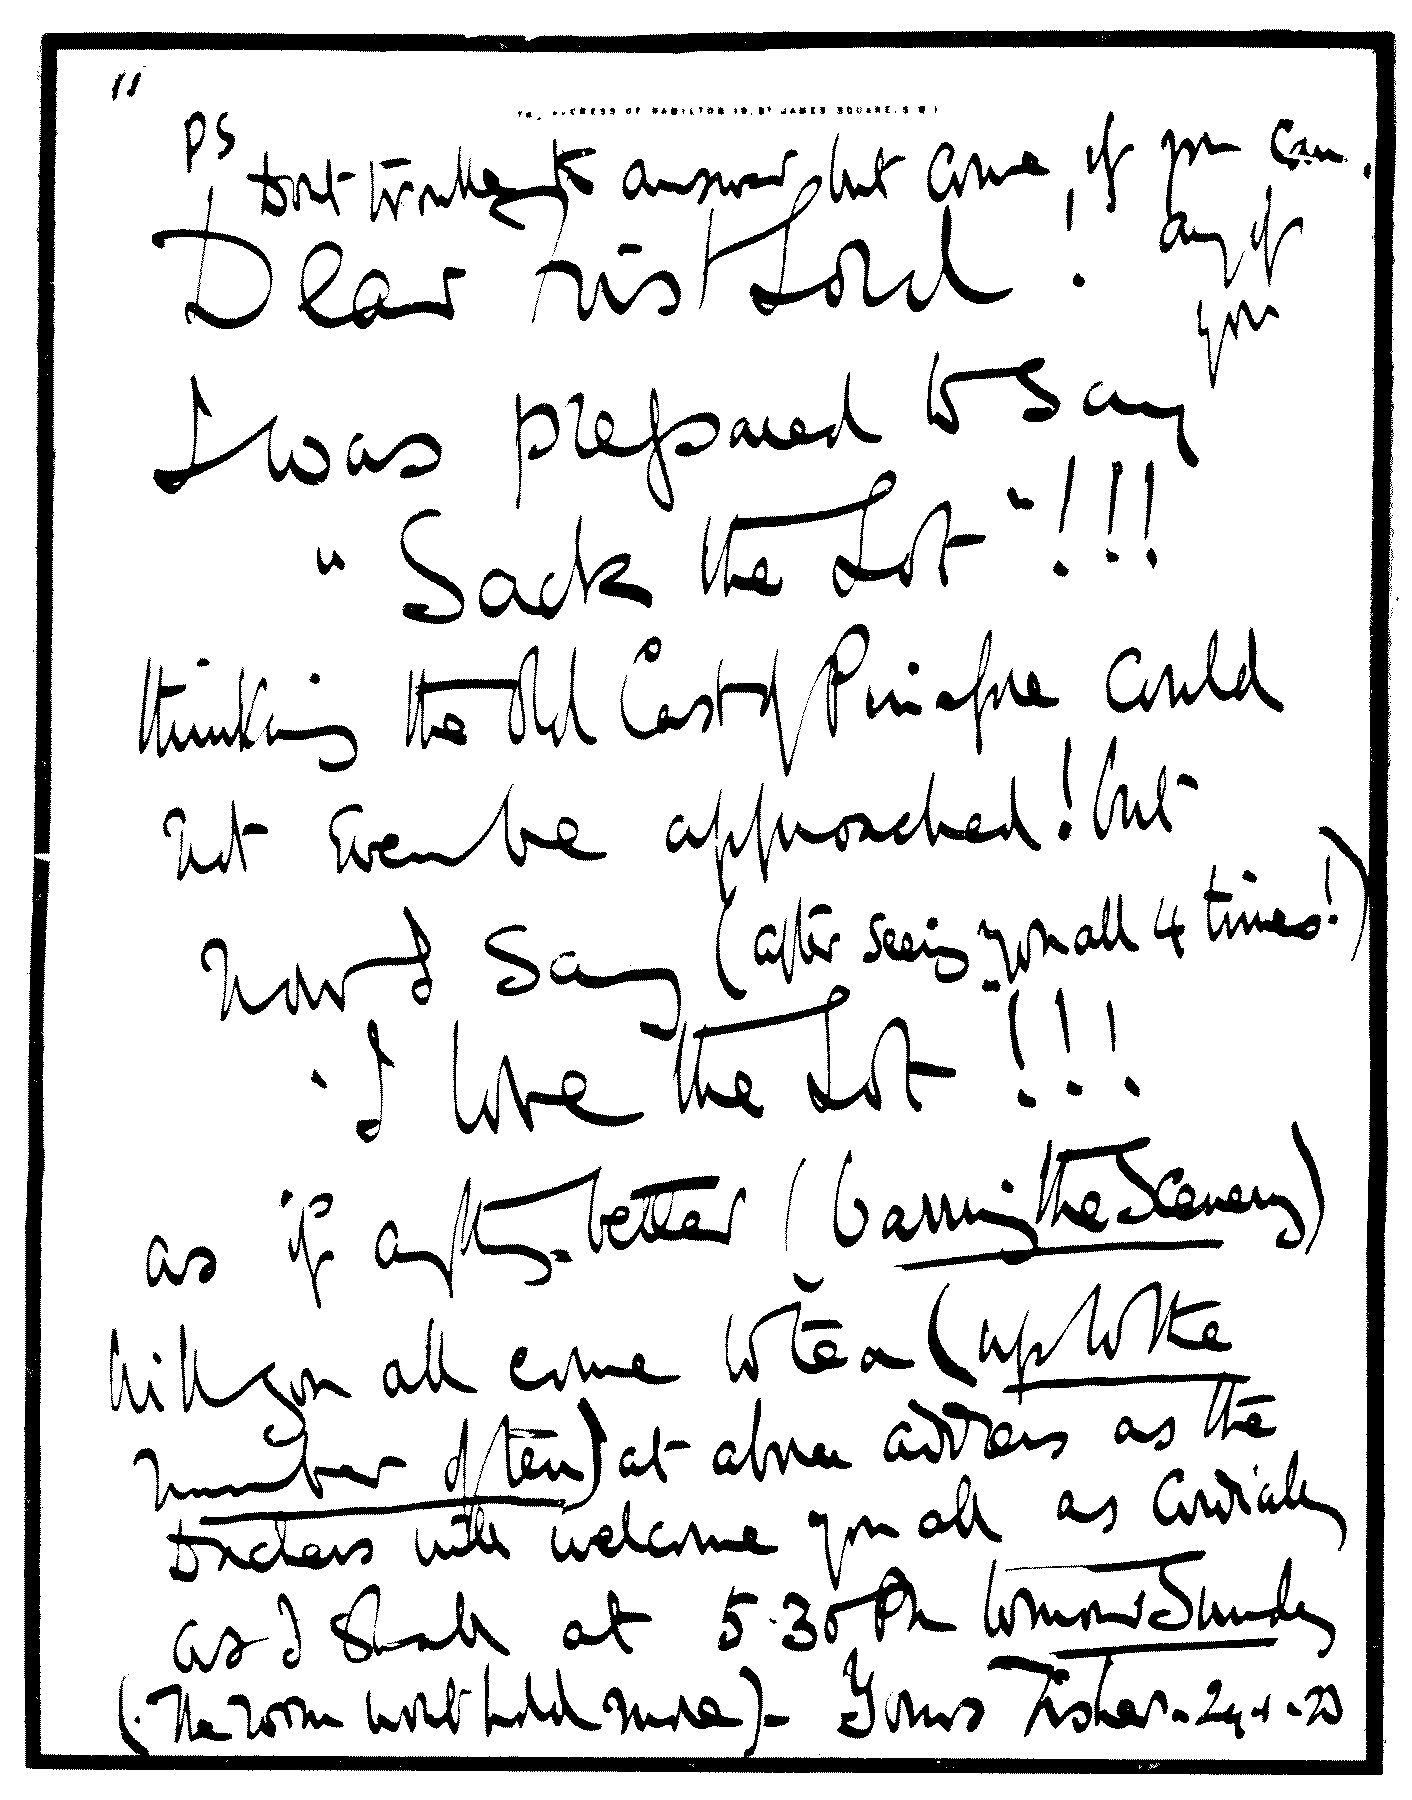 DUCHESS OF HAMILTON 19, ST JAMES SQUARE. S. W. 1
PS Dont trouble to answer but come, if you can.
any of
you
Dear First Lord!
I was prepared to say
"Sack the Lot"!!!
thinking the Old Cast of Pinafore could
not even be approached! but
now I Say (after seeing you all 4 times!)
"I love the Lot"!!!
as if anything better (barring the Scenery)
Will you all come to tea (up to the
number of ten) at above address as the
Duchess will welcome you all as cordially
as I shall at 5.30 PM tomorrow Sunday
(The room wont hold more) - Yours Fisher - 24-1-20